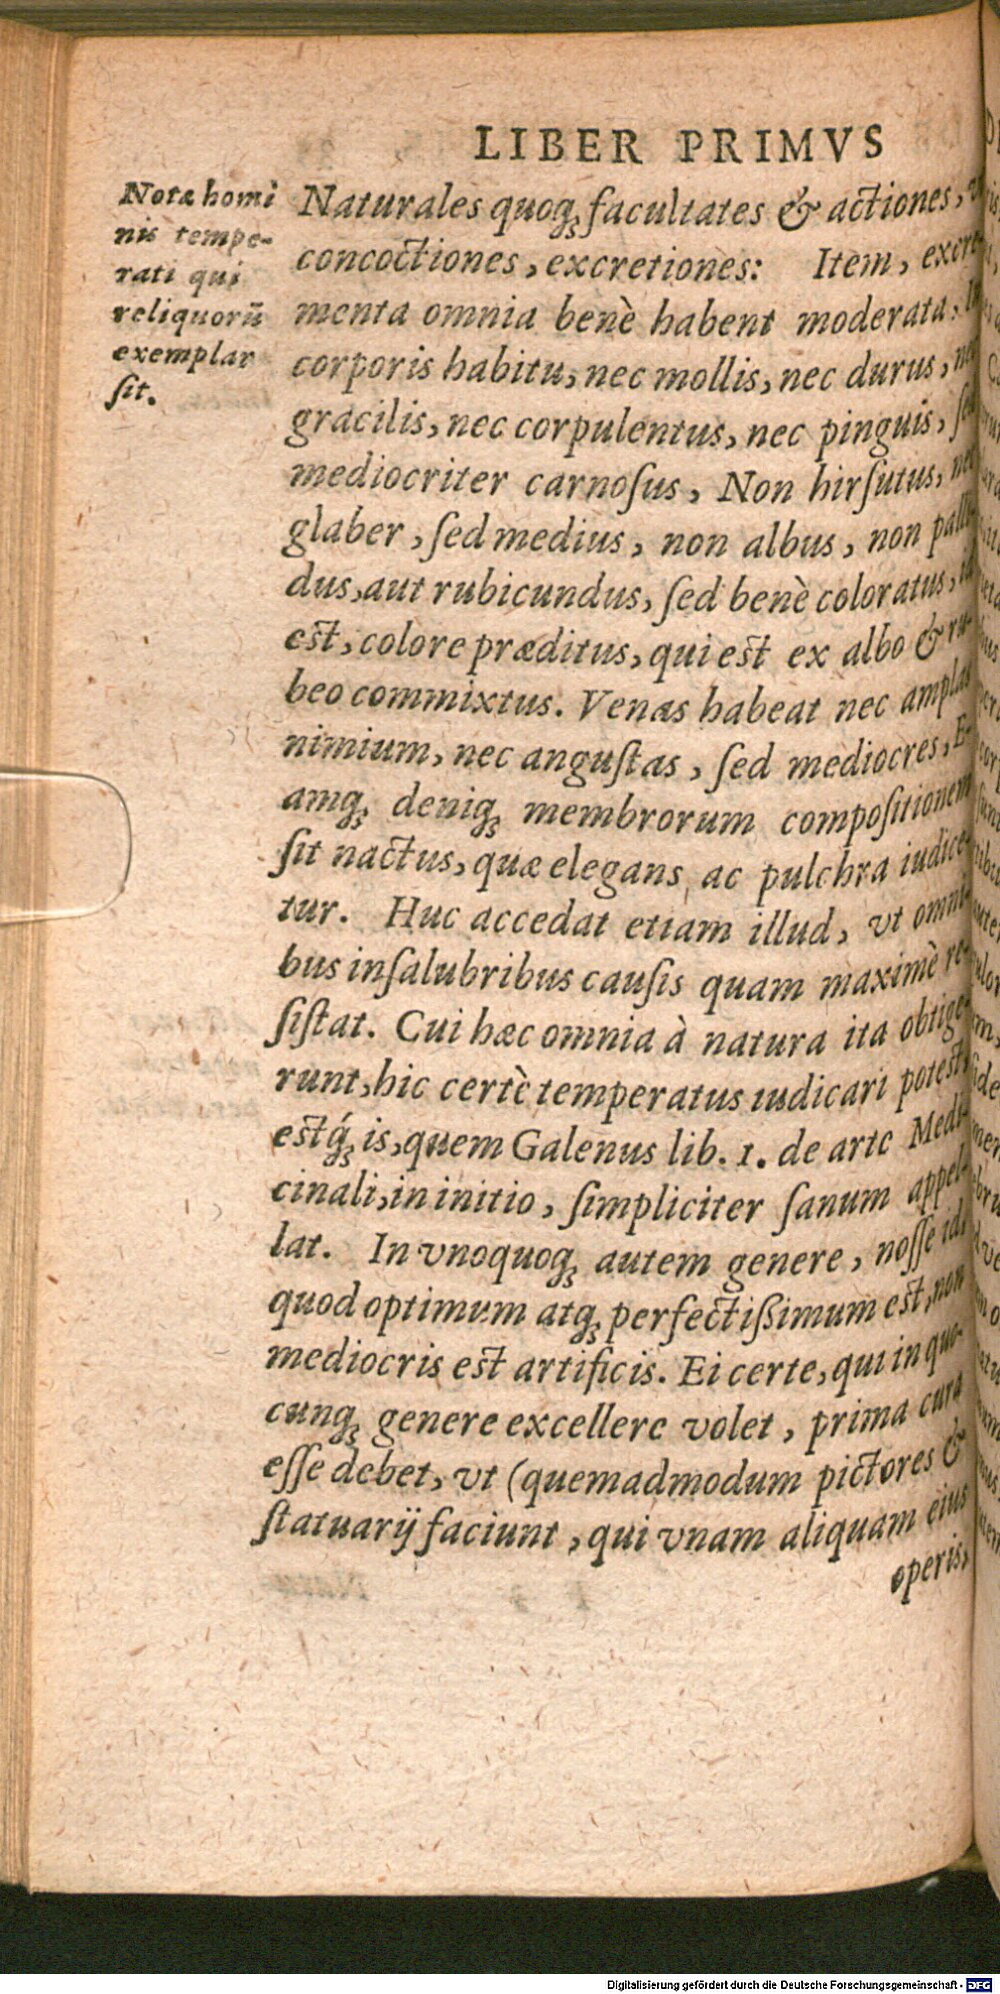 LIBER PRIMVS
Notæ homi
nis tempe-
rati qui
reliquorū
exemplar
ſit.
Naturales quoq; facultates & actiones,
concoctiones, excretiones: Item, excre
menta omnia benè habent moderata.
corporis habitu, nec mollis, nec durus, nec
gracilis, nec corpulentus, nec pinguis, ſed
mediocriter carnoſus, Non hirſutus, nec
glaber, ſed medius, non albus, non palli
dus, aut rubicundus, ſed benè coloratus, id
est, colore præditus, qui est ex albo & ru-
beo commixtus. Venas habeat nec amplas
nimium, nec anguſtas, ſed mediocres, E-
amq; deniq; membrorum compoſitionem
ſit nactus, quæ elegans ac pulchra iudice-
tur. Huc accedat etiam illud, vt omni-
bus inſalubribus cauſis quam maximè re-
ſiſtat. Cui hæc omnia à natura ita obtige-
runt, hic certè temperatus iudicari potest:
estq́; is, quem Galenus lib. 1. de arte Medi-
cinali, in initio, ſimpliciter ſanum appel-
lat. In vnoquoq; autem genere, noſſe id,
quod optimum atq; perfectißimum est, non
mediocris est artificis. Ei certe, qui in quo-
cunq; genere excellere volet, prima cura
eſſe debet, vt (quemadmodum pictores &
ſtatuarij faciunt, qui vnam aliquam eius
operis,
Digitalisierung gefördert durch die Deutsche Forschungsgemeinschaft - DFG